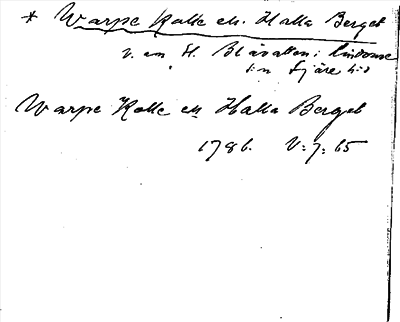 * Warpe Kalle el. Halla Berget
v. om St. Blåvallen i Lindome
s:n Fjäre h:d
Warpe Kalle el Halla Berget
1786. V:7:65